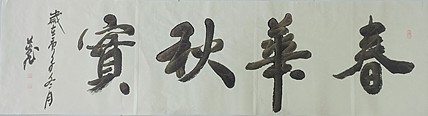 春華秋實
歲在庚子冬月